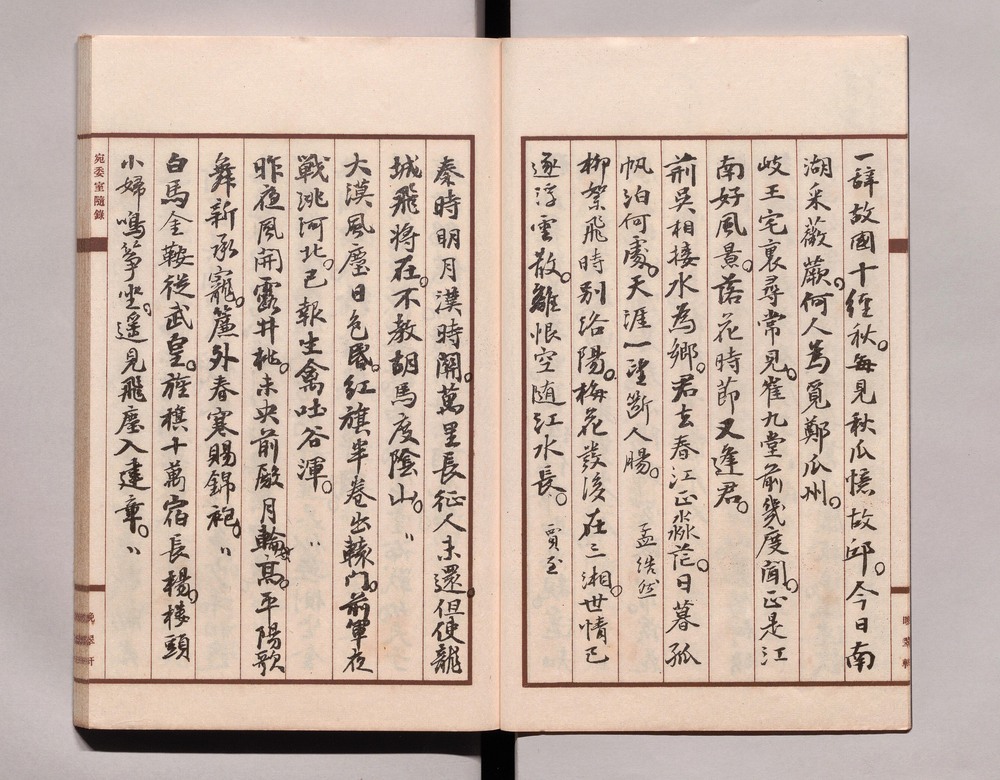 一辞故國十經秋。每見秋瓜憶故邱。今日南
湖采薇蕨。何人為覓鄭瓜州。
岐王宅裏尋常見。崔九堂前幾度聞。正是江
南好風景。落花時節又逢君。
荊吳相接水為鄉。君去春江正淼茫。日暮孤
帆泊何處。天涯一望斷人腸。 孟浩然
柳絮飛時別洛陽。梅花發後在三湘。世情已
逐浮雲散。離恨空隨江水長。 賈至
晚翠軒
秦時明月漢時關。萬里長征人未還。但使龍
城飛將在。不教胡馬度陰山。〃
大漠風塵日色昏。紅旗半卷出轅門。前軍夜
戰洮河北。已報生禽吐谷渾。〃
昨夜風開露井桃。未央前殿月輪高。平陽歌
舞新承寵。簾外春寒賜錦袍。〃
白馬金鞍從武皇。旌旗十萬宿長楊。樓頭
小婦鳴箏坐。遙見飛塵入建章。〃
宛委室隨錄
晚翠軒